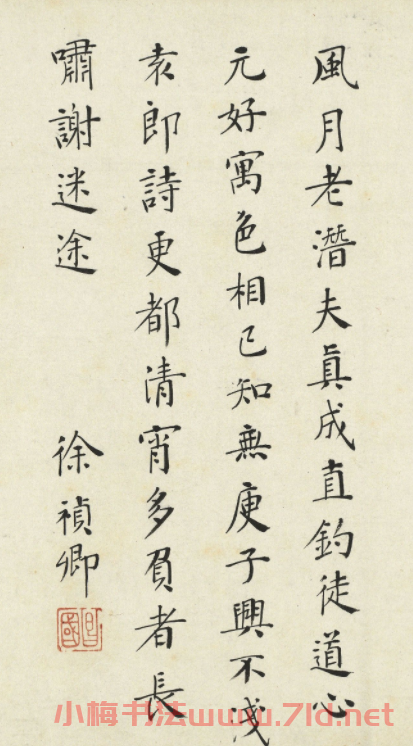 風月老潛夫眞成直釣徒道心
元好寓色相已知無庾子興不淺
袁郎詩更都清宵多負者長
嘯謝迷途
徐禎卿
昌國
小梅书法www.7ld.net